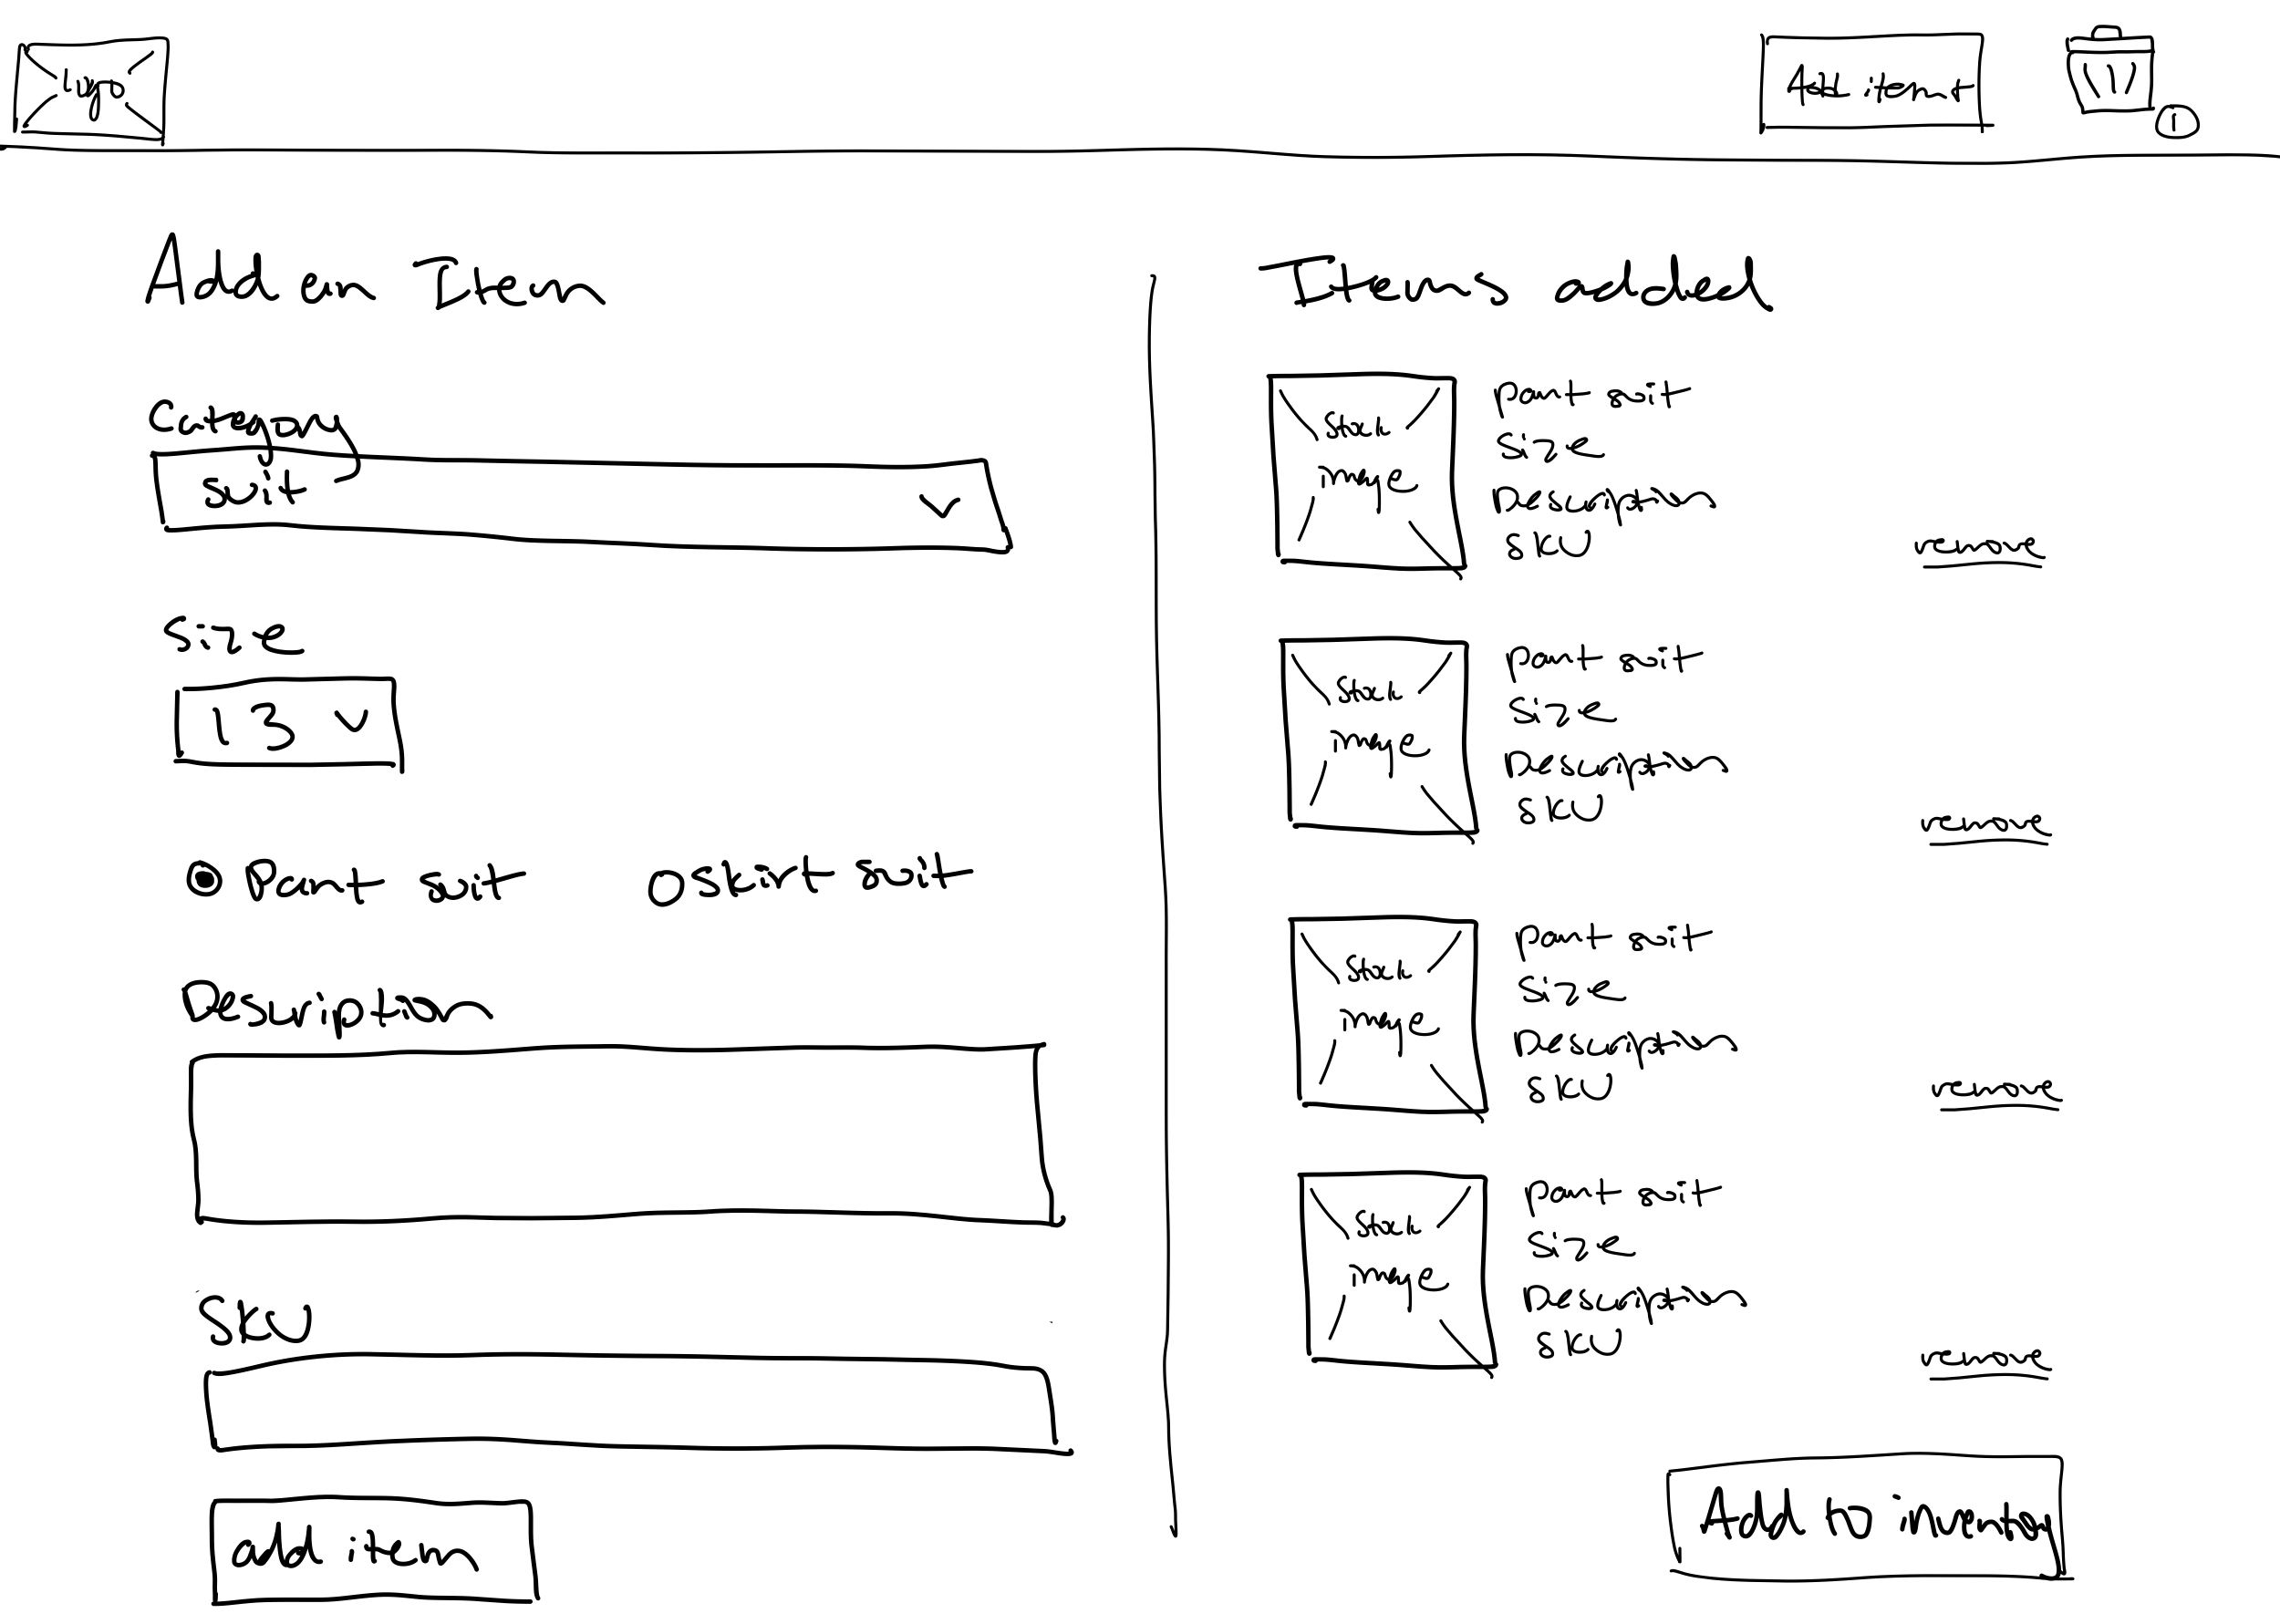 Logo
Add item
1
Add an Item
Category
suit
Size
13
Pant suit
skirt suit
Description
SKU
add item
Items added
stock
image
pant suit
size
Description
SKU
remove
stock
image
pant suit
size
Description
SKU
remove
stock
image
pant suit
size
Description
SKU
remove
stock
image
pant suit
size
Description
SKU
remove
Add to inventory